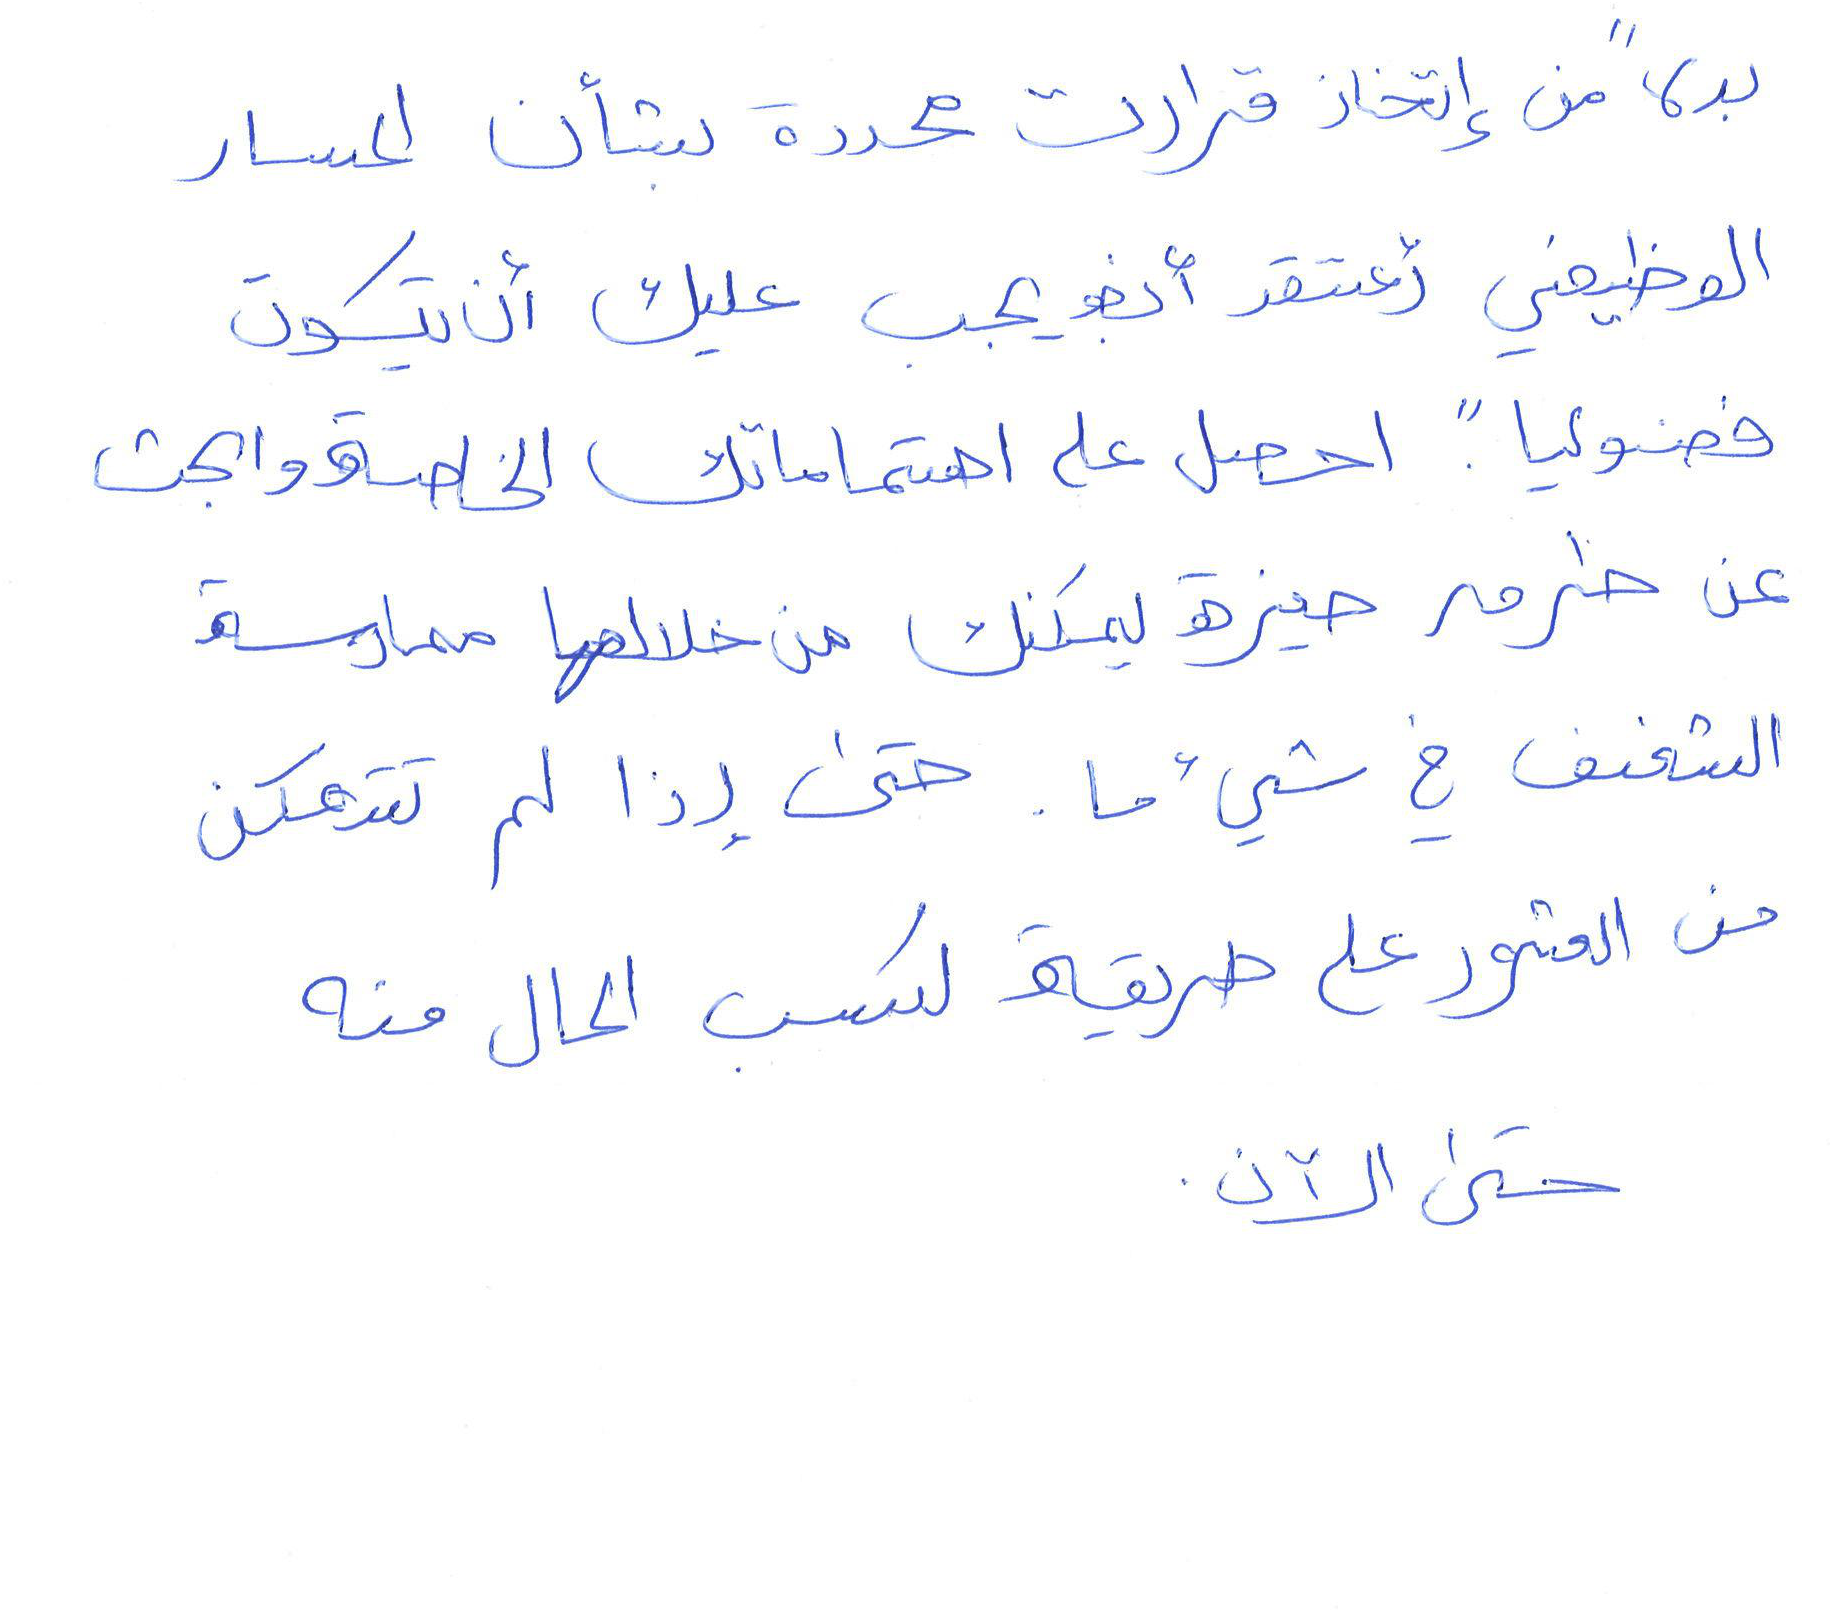 بدلاً من إتخاذ قرارات محددة بشأن المسار
الوظيفي أعتقد أنه يجب عليك أن تكون
فضولياً. احصل على اهتماماتك الخاصة وابحث
عن طرق مميزة يمكنك من خلالها ممارسة
الشغف في شيء ما. حتى إذا لم تتمكن
من العثور على طريقة لكسب المال منه
حتى الآن.